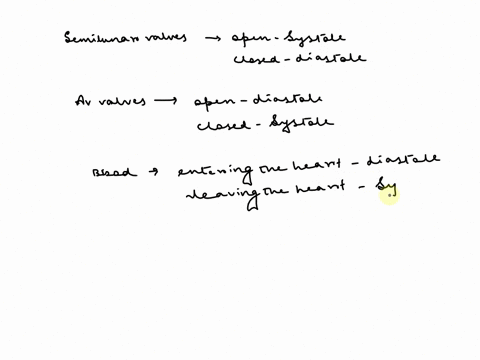 Semilunar valves → open - Systole
closed - diastole
AV valves → open - diastole
closed - Systole
Blood → entering the heart - diastole
leaving the heart - Sy